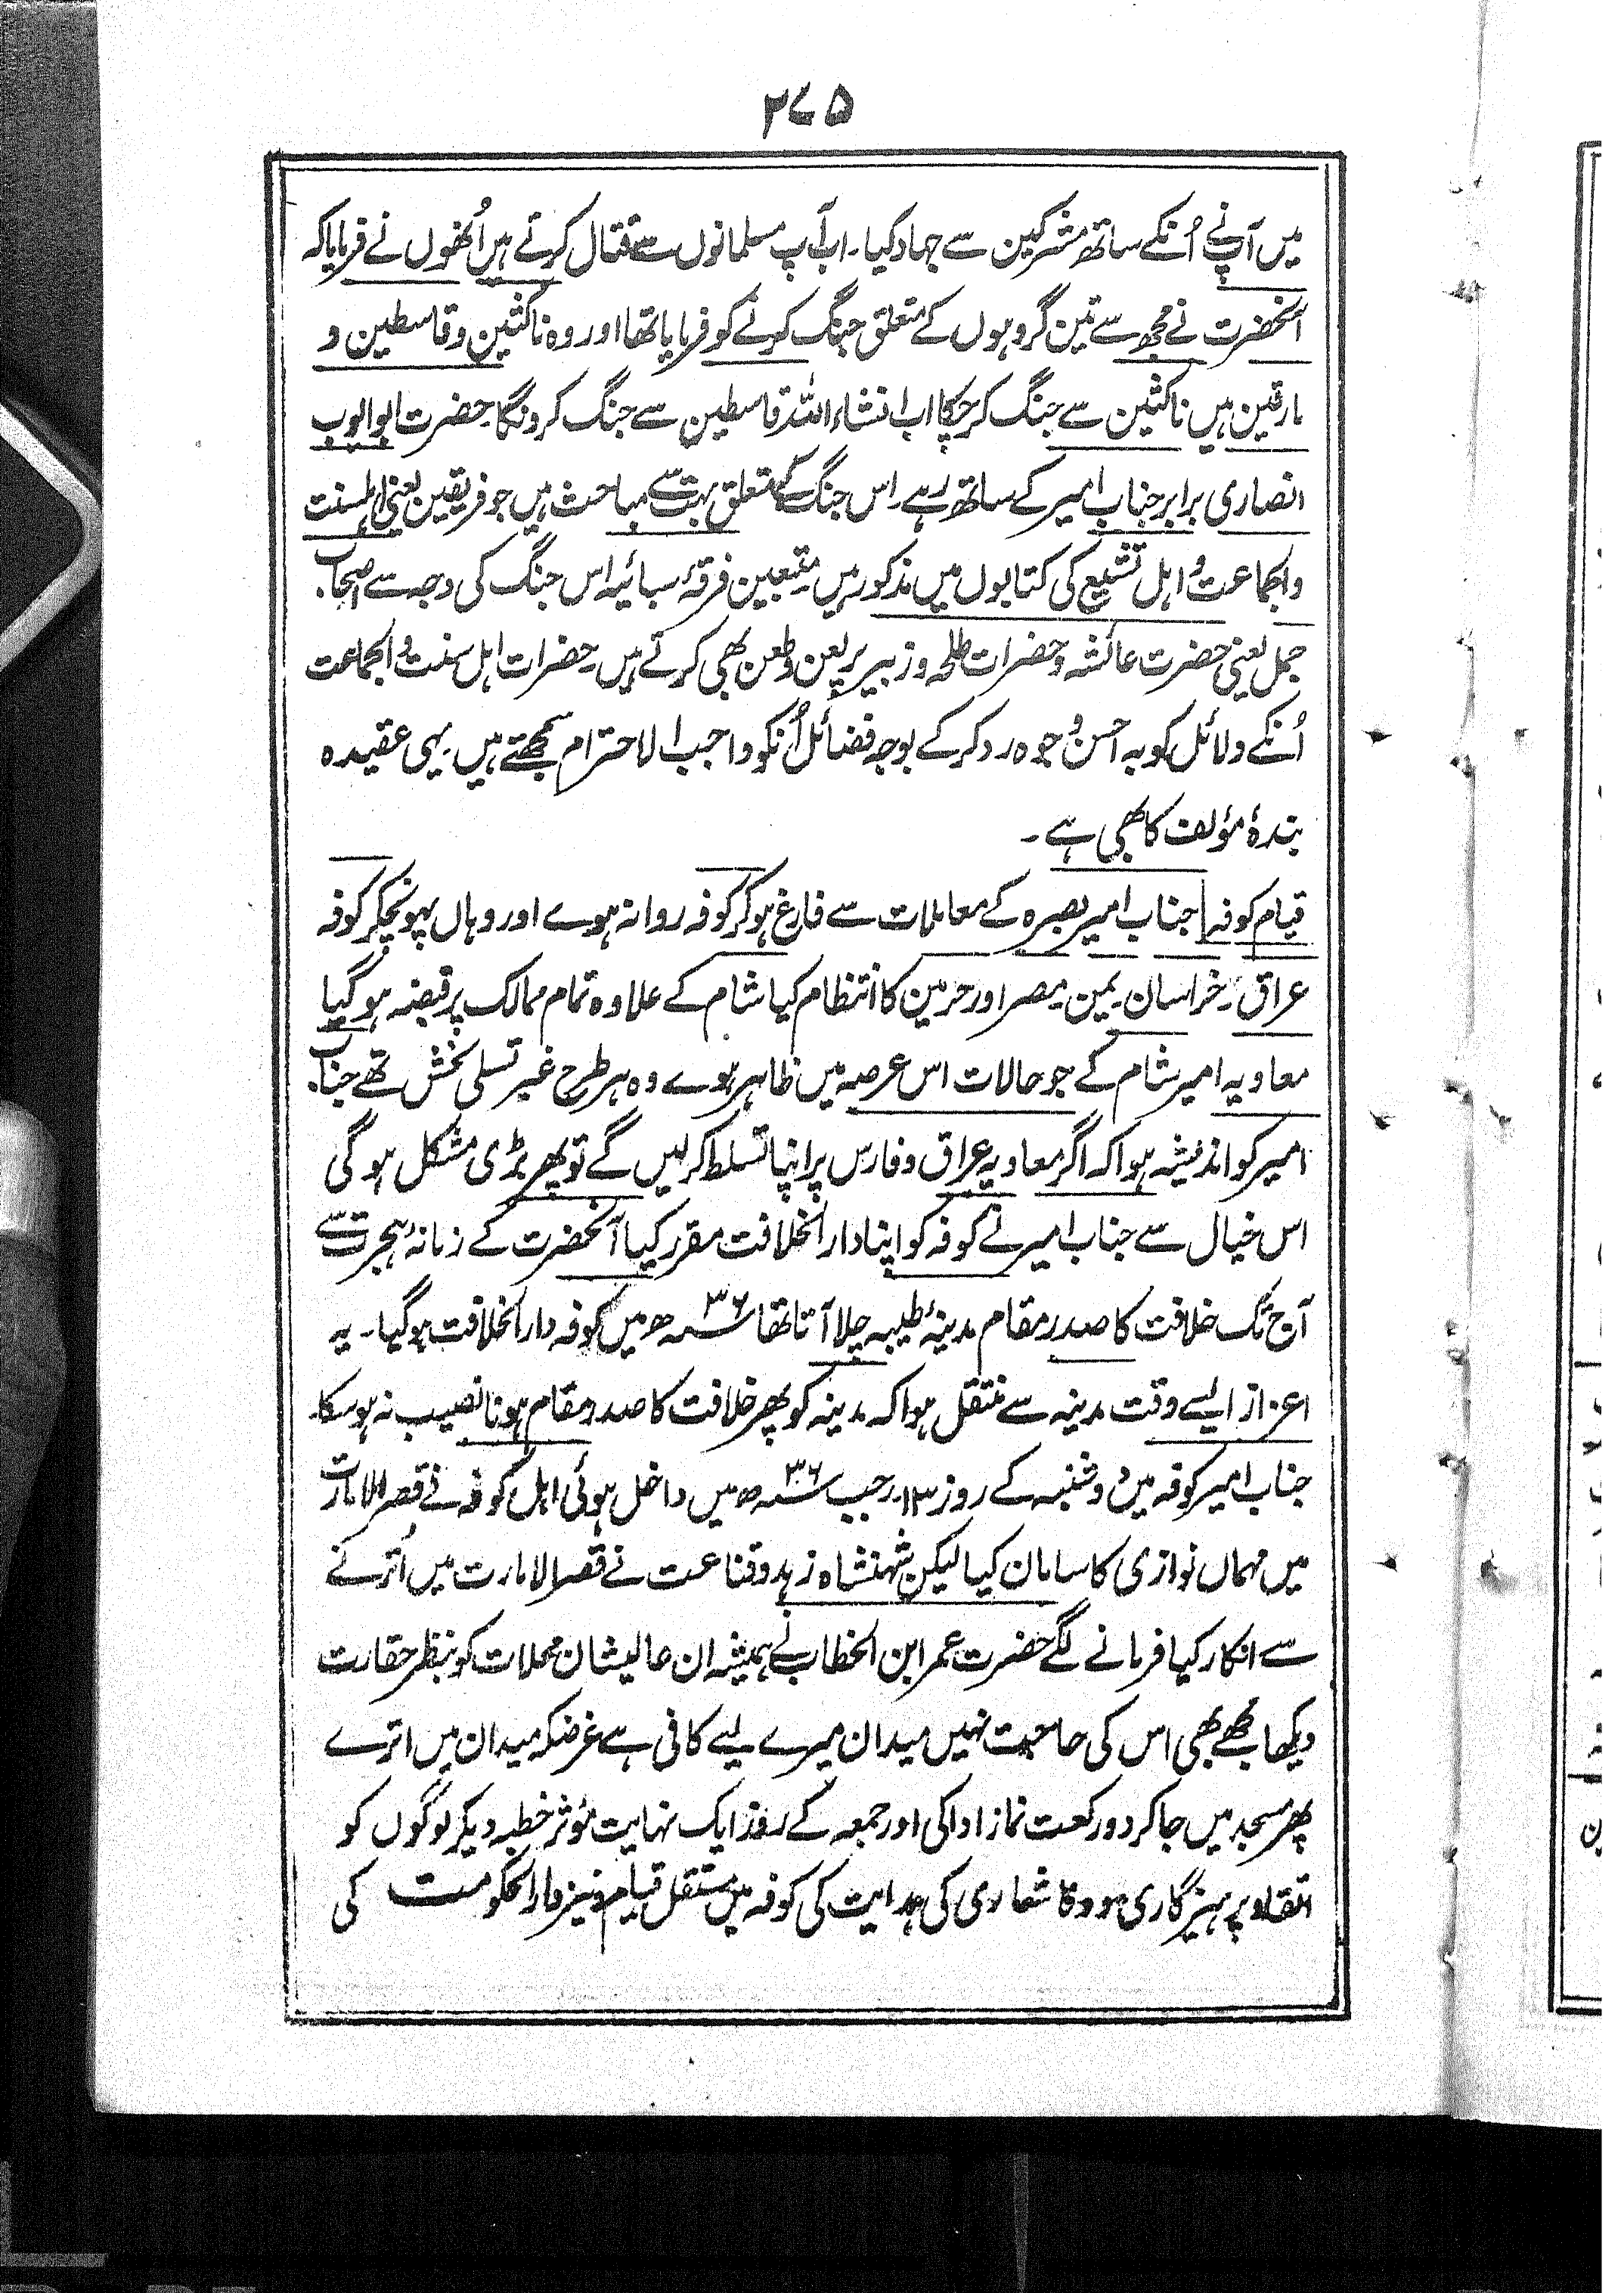 ۲۷۵
میں آپنے اُنکے ساتھ مشرکین سے جہاد کیا۔ اب آپ مسلمانوں سے قتال کرتے ہیں اُنھوں نے فرمایا کہ
آنحضرت نے مجھ سے تین گروہوں کے متعلق جنگ کرنے کو فرمایا تھا اور وہ ناکثین و قاسطین و
مارقین ہیں ناکثین سے جنگ کر چکا اب انشاء اللہ قاسطین سے جنگ کرونگا۔ حضرت ابو ایوب
انصاری برابر جناب امیر کے ساتھ رہے۔ اس جنگ کے متعلق بہت سے مباحث ہیں جو فریقین یعنی اہلسنت
والجماعت و اہل تشیع کی کتابوں میں مذکور ہیں۔ متبعین فرقۂ سبائیہ اس جنگ کی وجہ سے اصحاب
جمل یعنی حضرت عائشہ و حضرات طلحہ و زبیر پر لعن و طعن بھی کرتے ہیں۔ حضرات اہل سنت و الجماعت
اُنکے دلائل کو بہ احسن وجوہ رد کر کے بوجہ فضائل اُنکو واجب الاحترام سمجھتے ہیں۔ یہی عقیدہ
بندۂ مؤلف کا بھی ہے۔
قیام کوفہ| جناب امیر بصرہ کے معاملات سے فارغ ہو کر کوفہ روانہ ہوے اور وہاں پہونچکر کوفہ
عراق۔ خراسان۔ یمن۔ مصر اور حرمین کا انتظام کیا شام کے علاوہ تمام ممالک پر قبضہ ہو گیا
معاویہ امیر شام کے جو حالات اس عرصہ میں ظاہر ہوے وہ ہر طرح غیر تسلی بخش تھے جناب
امیر کو اندیشہ ہوا کہ اگر معاویہ عراق و فارس پر اپنا تسلط کر لیں گے تو پھر بڑی مشکل ہو گی
اس خیال سے جناب امیر نے کوفہ کو اپنا دار الخلافت مقرر کیا آنحضرت کے زمانۂ ہجرت سے
آج تک خلافت کا صدر مقام مدینۂ طیبہ چلا آتا تھا ۳۶ سنہ ھ میں کوفہ دار الخلافت ہو گیا۔ یہ
اعزاز ایسے وقت مدینہ سے منتقل ہوا کہ مدینہ کو پھر خلافت کا صدر مقام ہونا نصیب نہ ہو سکا۔
جناب امیر کوفہ میں دوشنبہ کے روز ۱۲۔ رجب ۳۶ سنہ ھ میں داخل ہوئی اہل کوفہ نے قصر الامارت
میں مہماں نوازی کا سامان کیا لیکن شہنشاہ زہد و قناعت نے قصر الامارت میں اُترنے
سے انکار کیا فرمانے لگے حضرت عمر ابن الخطاب نے ہمیشہ ان عالیشان محلات کو بنظر حقارت
دیکھا مجھے بھی اس کی حاجت نہیں میدان میرے لیے کافی ہے غرضکہ میدان میں اترے
پھر مسجد میں جا کر دو رکعت نماز ادا کی اور جمعہ کے روز ایک نہایت مؤثر خطبہ دیکر لوگوں کو
اتقاء و پرہیزگاری و وفا شعاری کی ہدایت کی کوفہ میں مستقل قیام و نیز دار الحکومت کی